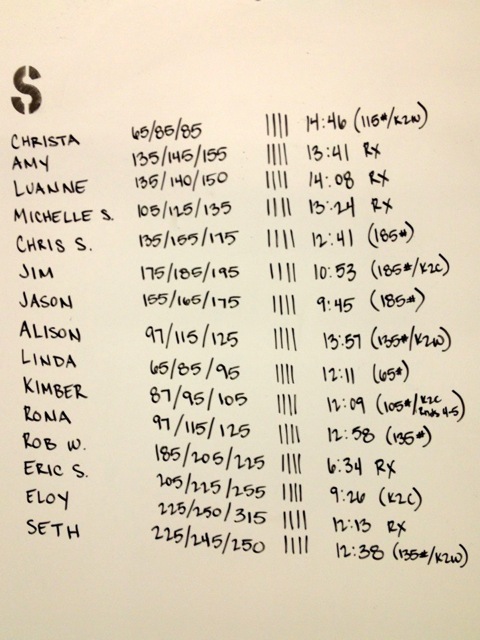 S
CHRISTA 65/85/85 |||| 14:46 (115#/K2W)
AMY 135/145/155 |||| 13:41 RX
LUANNE 135/140/150 |||| 14:08 RX
MICHELLE S. 105/125/135 |||| 13:24 RX
CHRIS S. 135/155/175 |||| 12:41 (185#)
JIM 175/185/195 |||| 10:53 (185#/K2C)
JASON 155/165/175 |||| 9:45 (185#)
ALISON 97/115/125 |||| 13:57 (135#/K2W)
LINDA 65/85/95 |||| 12:11 (65#)
KIMBER 87/95/105 |||| 12:09 (105#/K2C Rnds 4-5)
RONA 97/115/125 |||| 12:58 (135#)
ROB W. 185/205/225 |||| 6:34 RX
ERIC S. 205/225/255 |||| 9:26 (K2C)
ELOY 225/250/315 |||| 12:13 RX
SETH 225/245/250 |||| 12:38 (135#/K2W)